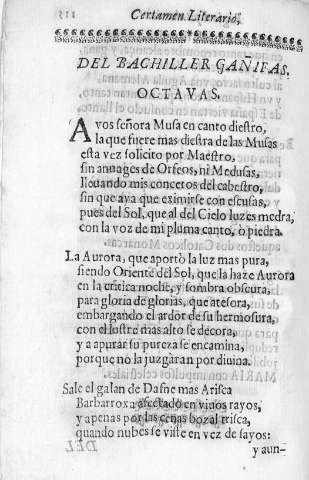 Certamen Literario,
DEL BACHILLER GAÑIFAS.
OCTAVAS.
A vos señora Musa en canto diestro,
la que fuere mas diestra de las Musas
esta vez solicito por Maestro,
sin anuages de Orfeos, ni Medusas,
lleuando mis concetos del cabestro,
sin que aya que eximirse con escusas,
pues del Sol, que al del Cielo luzes medra,
con la voz de mi pluma canto, ò piedra.
La Aurora, que aportò la luz mas pura,
siendo Oriente del Sol, que la haze Aurora
en la critica noche, y sombra obscura,
para gloria de glorias, que atesora,
embargando el ardor de su hermosura,
con el lustre mas alto se decora,
y a apurar su pureza se encamina,
porque no la juzgàran por diuina.
Sale el galan de Dafne mas Arisca
Barbarroxa afectado en viuos rayos,
y apenas por las cenas bozal trisca,
quando nubes se viste en vez de sayos:
y aun-